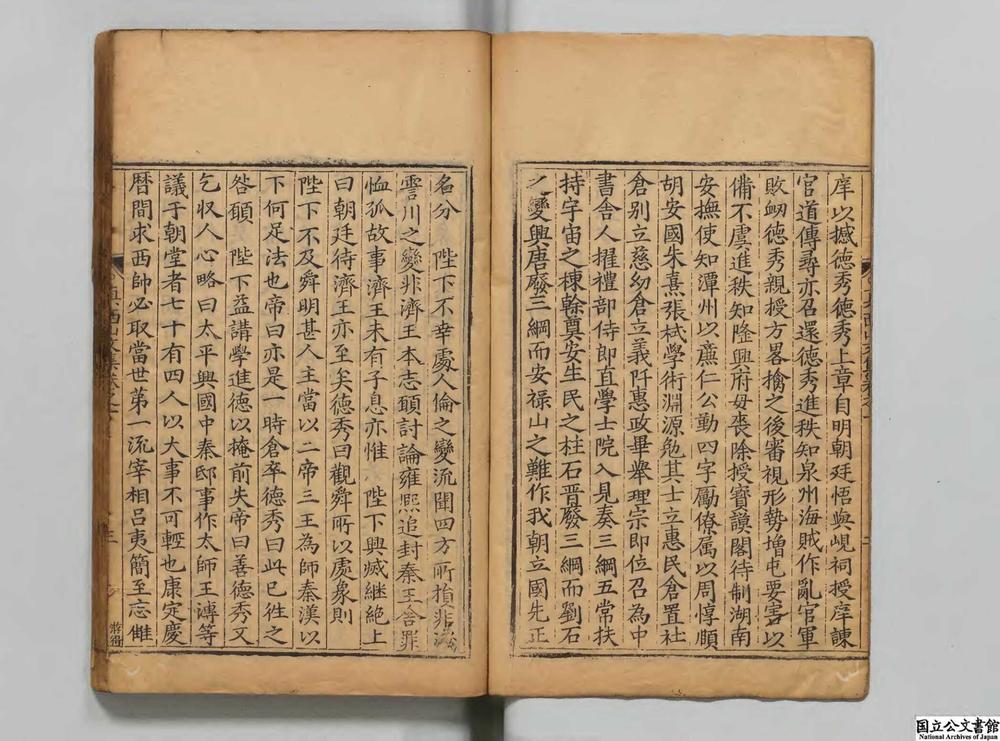 庠以撼德秀德秀上章自明朝廷悟與峴祠授庠諫
官道傳尋亦召還德秀進秩知泉州海賊作亂官軍
敗衂德秀親授方畧擒之後審視形勢增屯要害以
備不虞進秩知隆興府毋喪除授寶謨閣待制湖南
安撫使知潭州以廉仁公勤四字勵僚属以周惇頤
胡安國朱熹張栻學術淵源勉其士立惠民倉置社
倉别立慈幼倉立義阡惠政畢舉理宗即位召為中
書舎人擢禮部侍郎直學士院入見奏三綱五常扶
持宇宙之棟榦奠安生民之柱石晋廢三綱而劉石
之變興唐廢三綱而安禄山之難作我朝立國先正
名分　陛下不幸處人倫之變流聞四方所損非淺
霅川之變非濟王本志願討論雍熙追封秦王舎罪
恤孤故事濟王未有子息亦惟　陛下興滅継絶上
曰朝廷待濟王亦至矣德秀曰觀舜所以處象則
陛下不及舜明甚人主當以二帝三王為師秦漢以
下何足法也帝曰亦是一時倉卒德秀曰此已徃之
咎願　陛下益講學進德以掩前失帝曰善德秀又
乞収人心略曰太平興國中秦邸事作太師王溥等
議于朝堂者七十有四人以大事不可輕也康定慶
暦間求西帥必取當世第一流宰相吕夷簡至忘雠
三
国立公文書館
National Archives of Japan